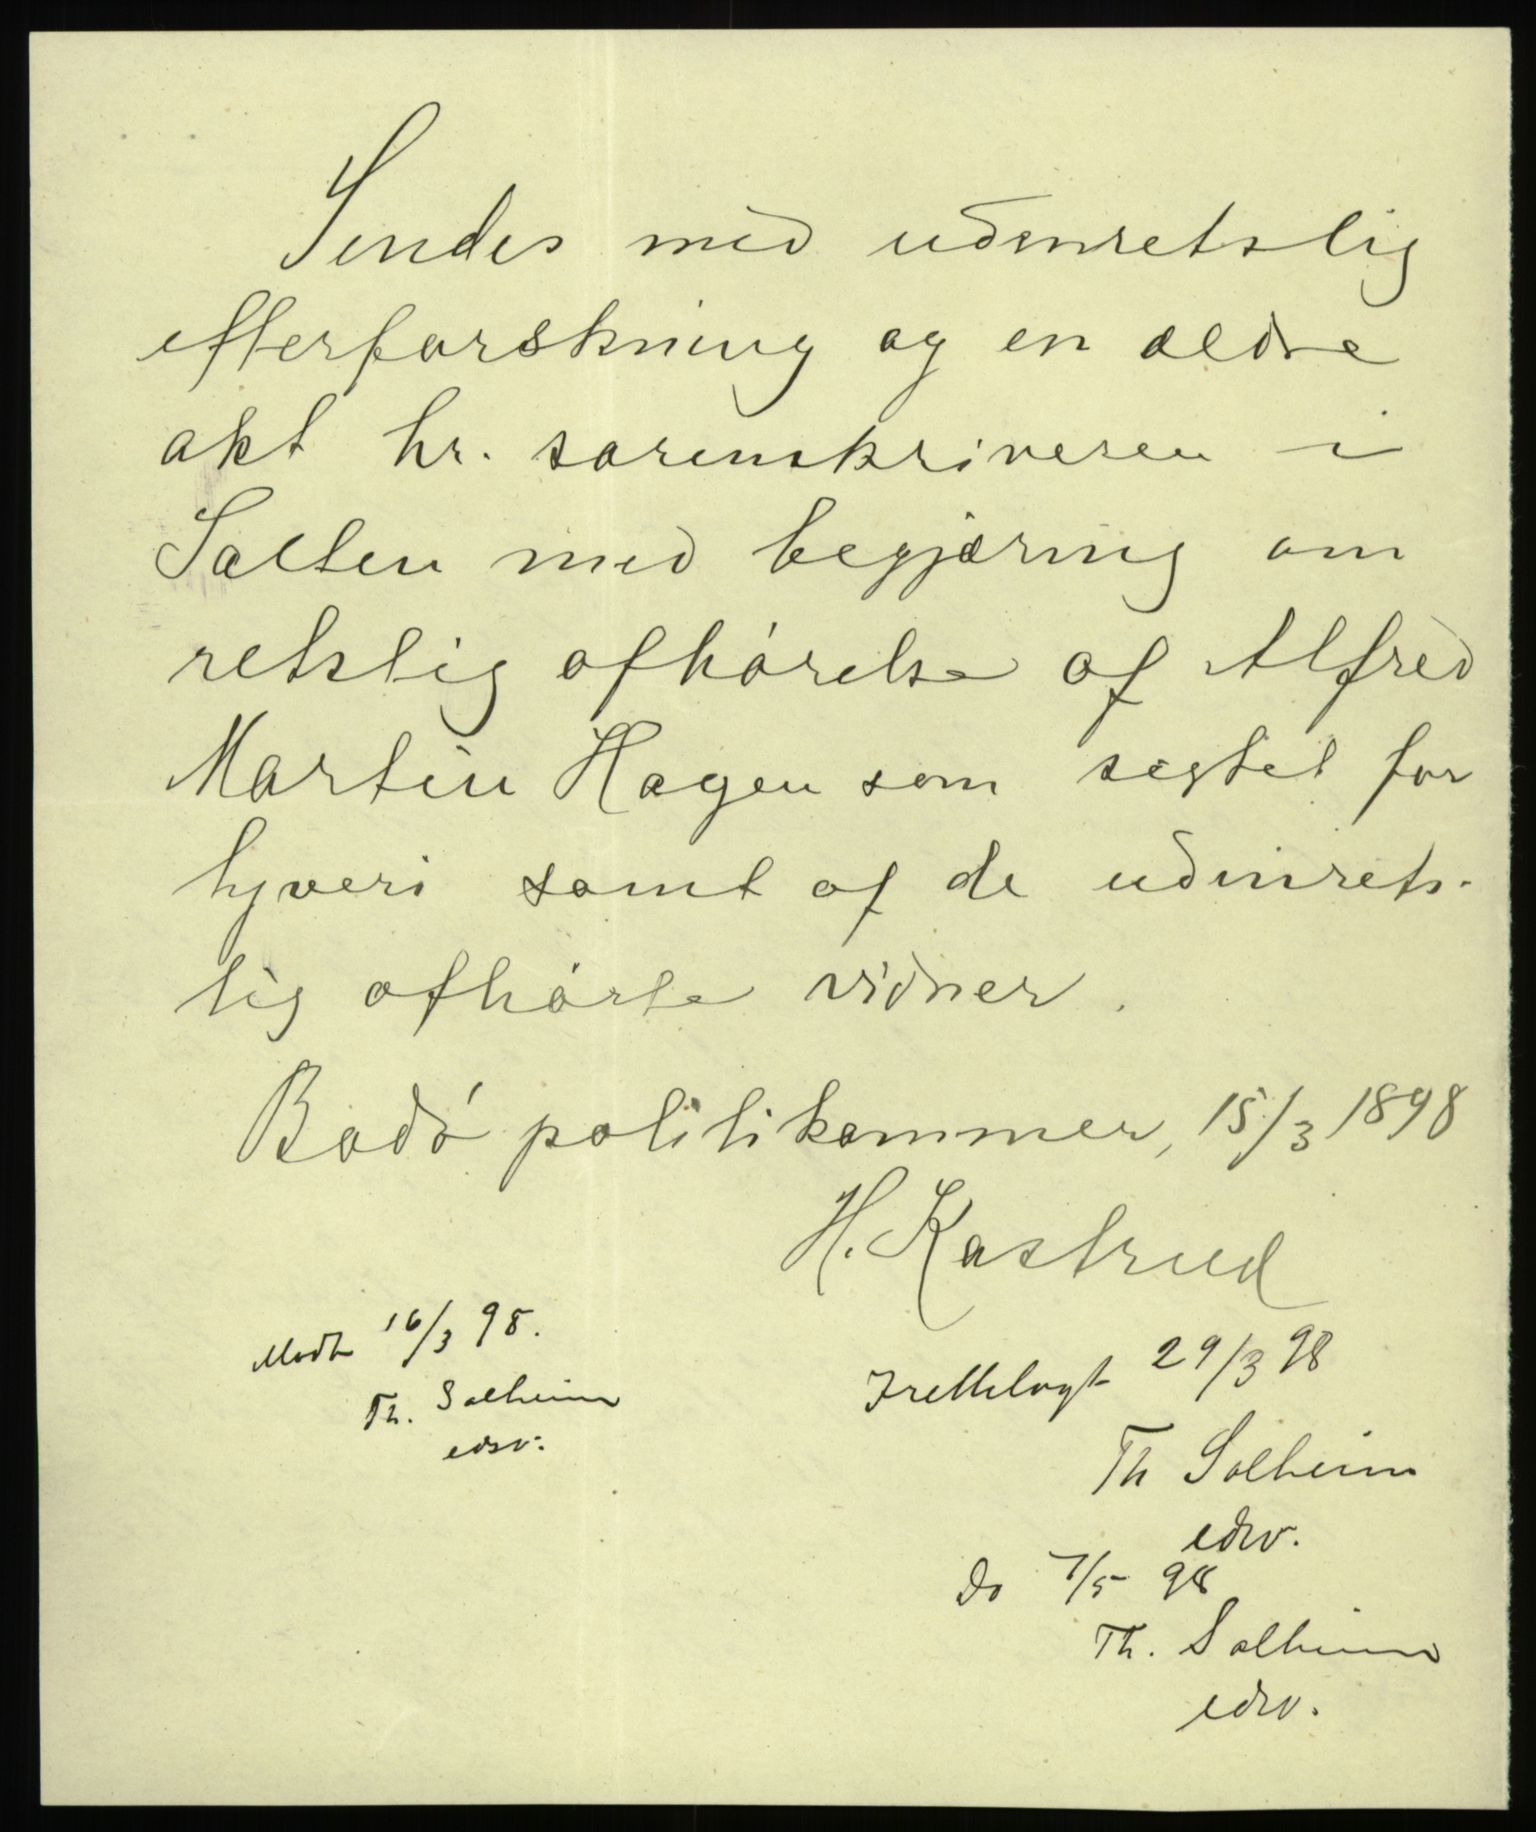 Sendes med udenretslig
efterforskning og en ældre
akt hr. sorenskriveren i
Salten med begjæring om
retslig afhörelse af Alfred
Martin Hagen som sigtet for
tyveri samt af de udenrets-
lig afhörte vidner.
Bodö politikammer, 15/3 1898
H. Kastrud
Modt 16/3 98.
Th. Solheim
edsv.
Irettelagt 29/3 98
Th Solheim
edsv.
Do 7/5 98
Th. Solheim
edsv.